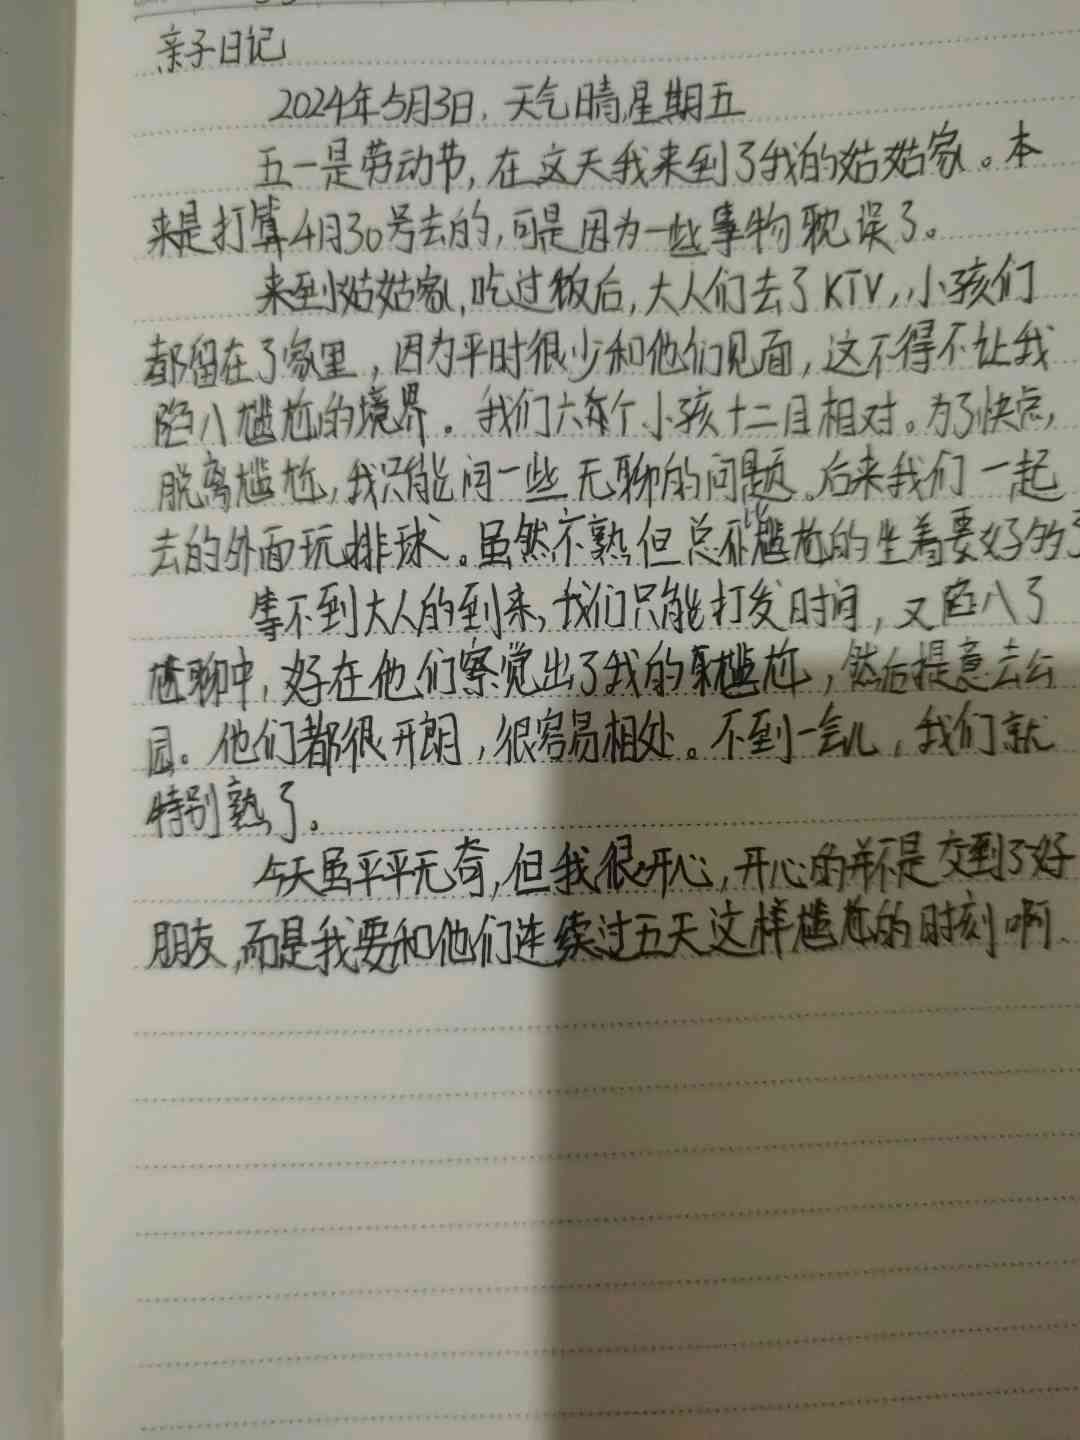 亲子日记
2024年5月3日，天气晴，星期五
五一是劳动节，在这天我来到了我的姑姑家。本
来是打算4月30号去的，可是因为一些事物耽误了。
来到姑姑家，吃过饭后，大人们去了KTV，小孩们
都留在了家里，因为平时很少和他们见面，这不得不让我
陷入尴尬的境界。我们六个小孩十二目相对。为了快点，
脱离尴尬，我只能问一些无聊的问题。后来我们一起
去的外面玩排球。虽然不熟，但总比尴尬的坐着要好的多
等不到大人的到来，我们只能打发时间，又陷入了
尴聊中，好在他们察觉出了我的尴尬，然后提意去公
园。他们都很开朗，很容易相处。不到一会儿，我们就
特别熟了。
今天虽平平无奇，但我很开心，开心的并不是交到了好
朋友，而是我要和他们连续过五天这样尴尬的时刻啊、